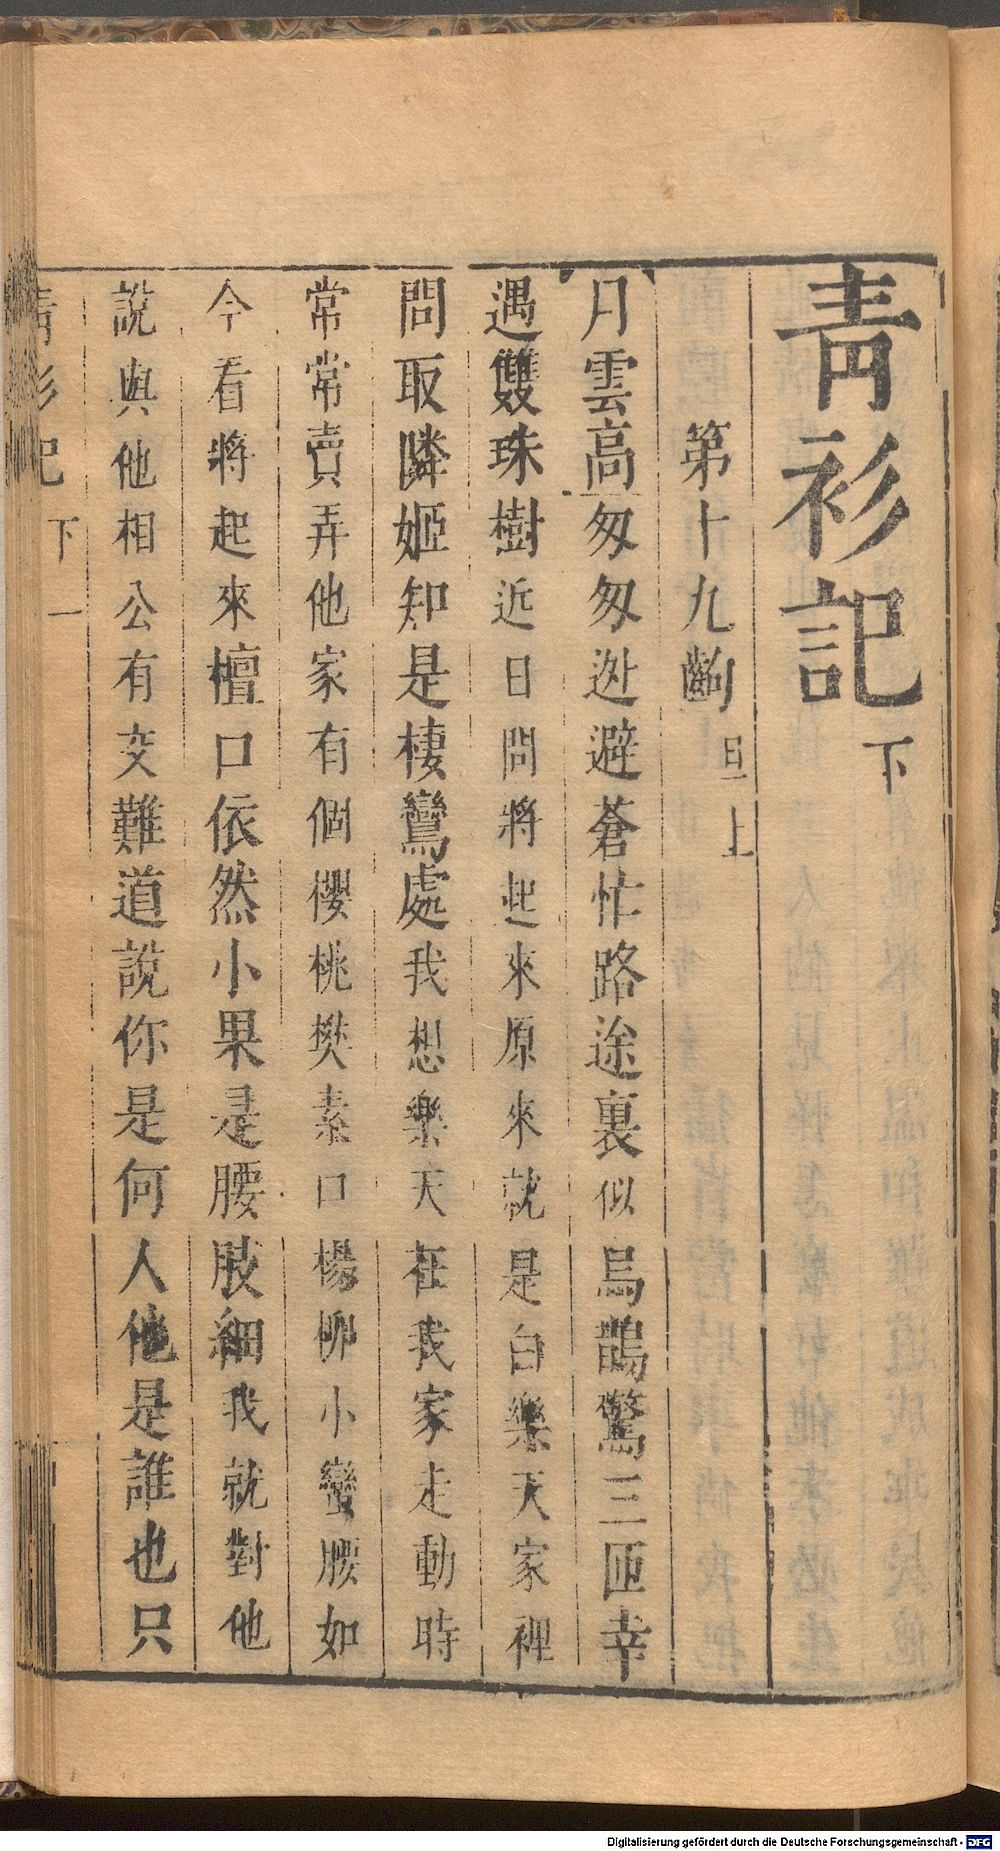 青衫記下
第十九齣 旦上
月雲高匆匆迯避蒼忙路途裏似烏鵲驚三匝幸
遇雙珠樹近日問將起來原來就是白樂天家裡
問取隣姬知是棲鸞處我想樂天在我家走動時
常常賣弄他家有個櫻桃樊素口楊柳小蠻腰如
今看將起來檀口依然小果是腰肢細我就對他
說與他相公有交難道說你是何人他是誰也只
青衫記 下 一
Digitalisierung gefördert durch die Deutsche Forschungsgemeinschaft - DFG